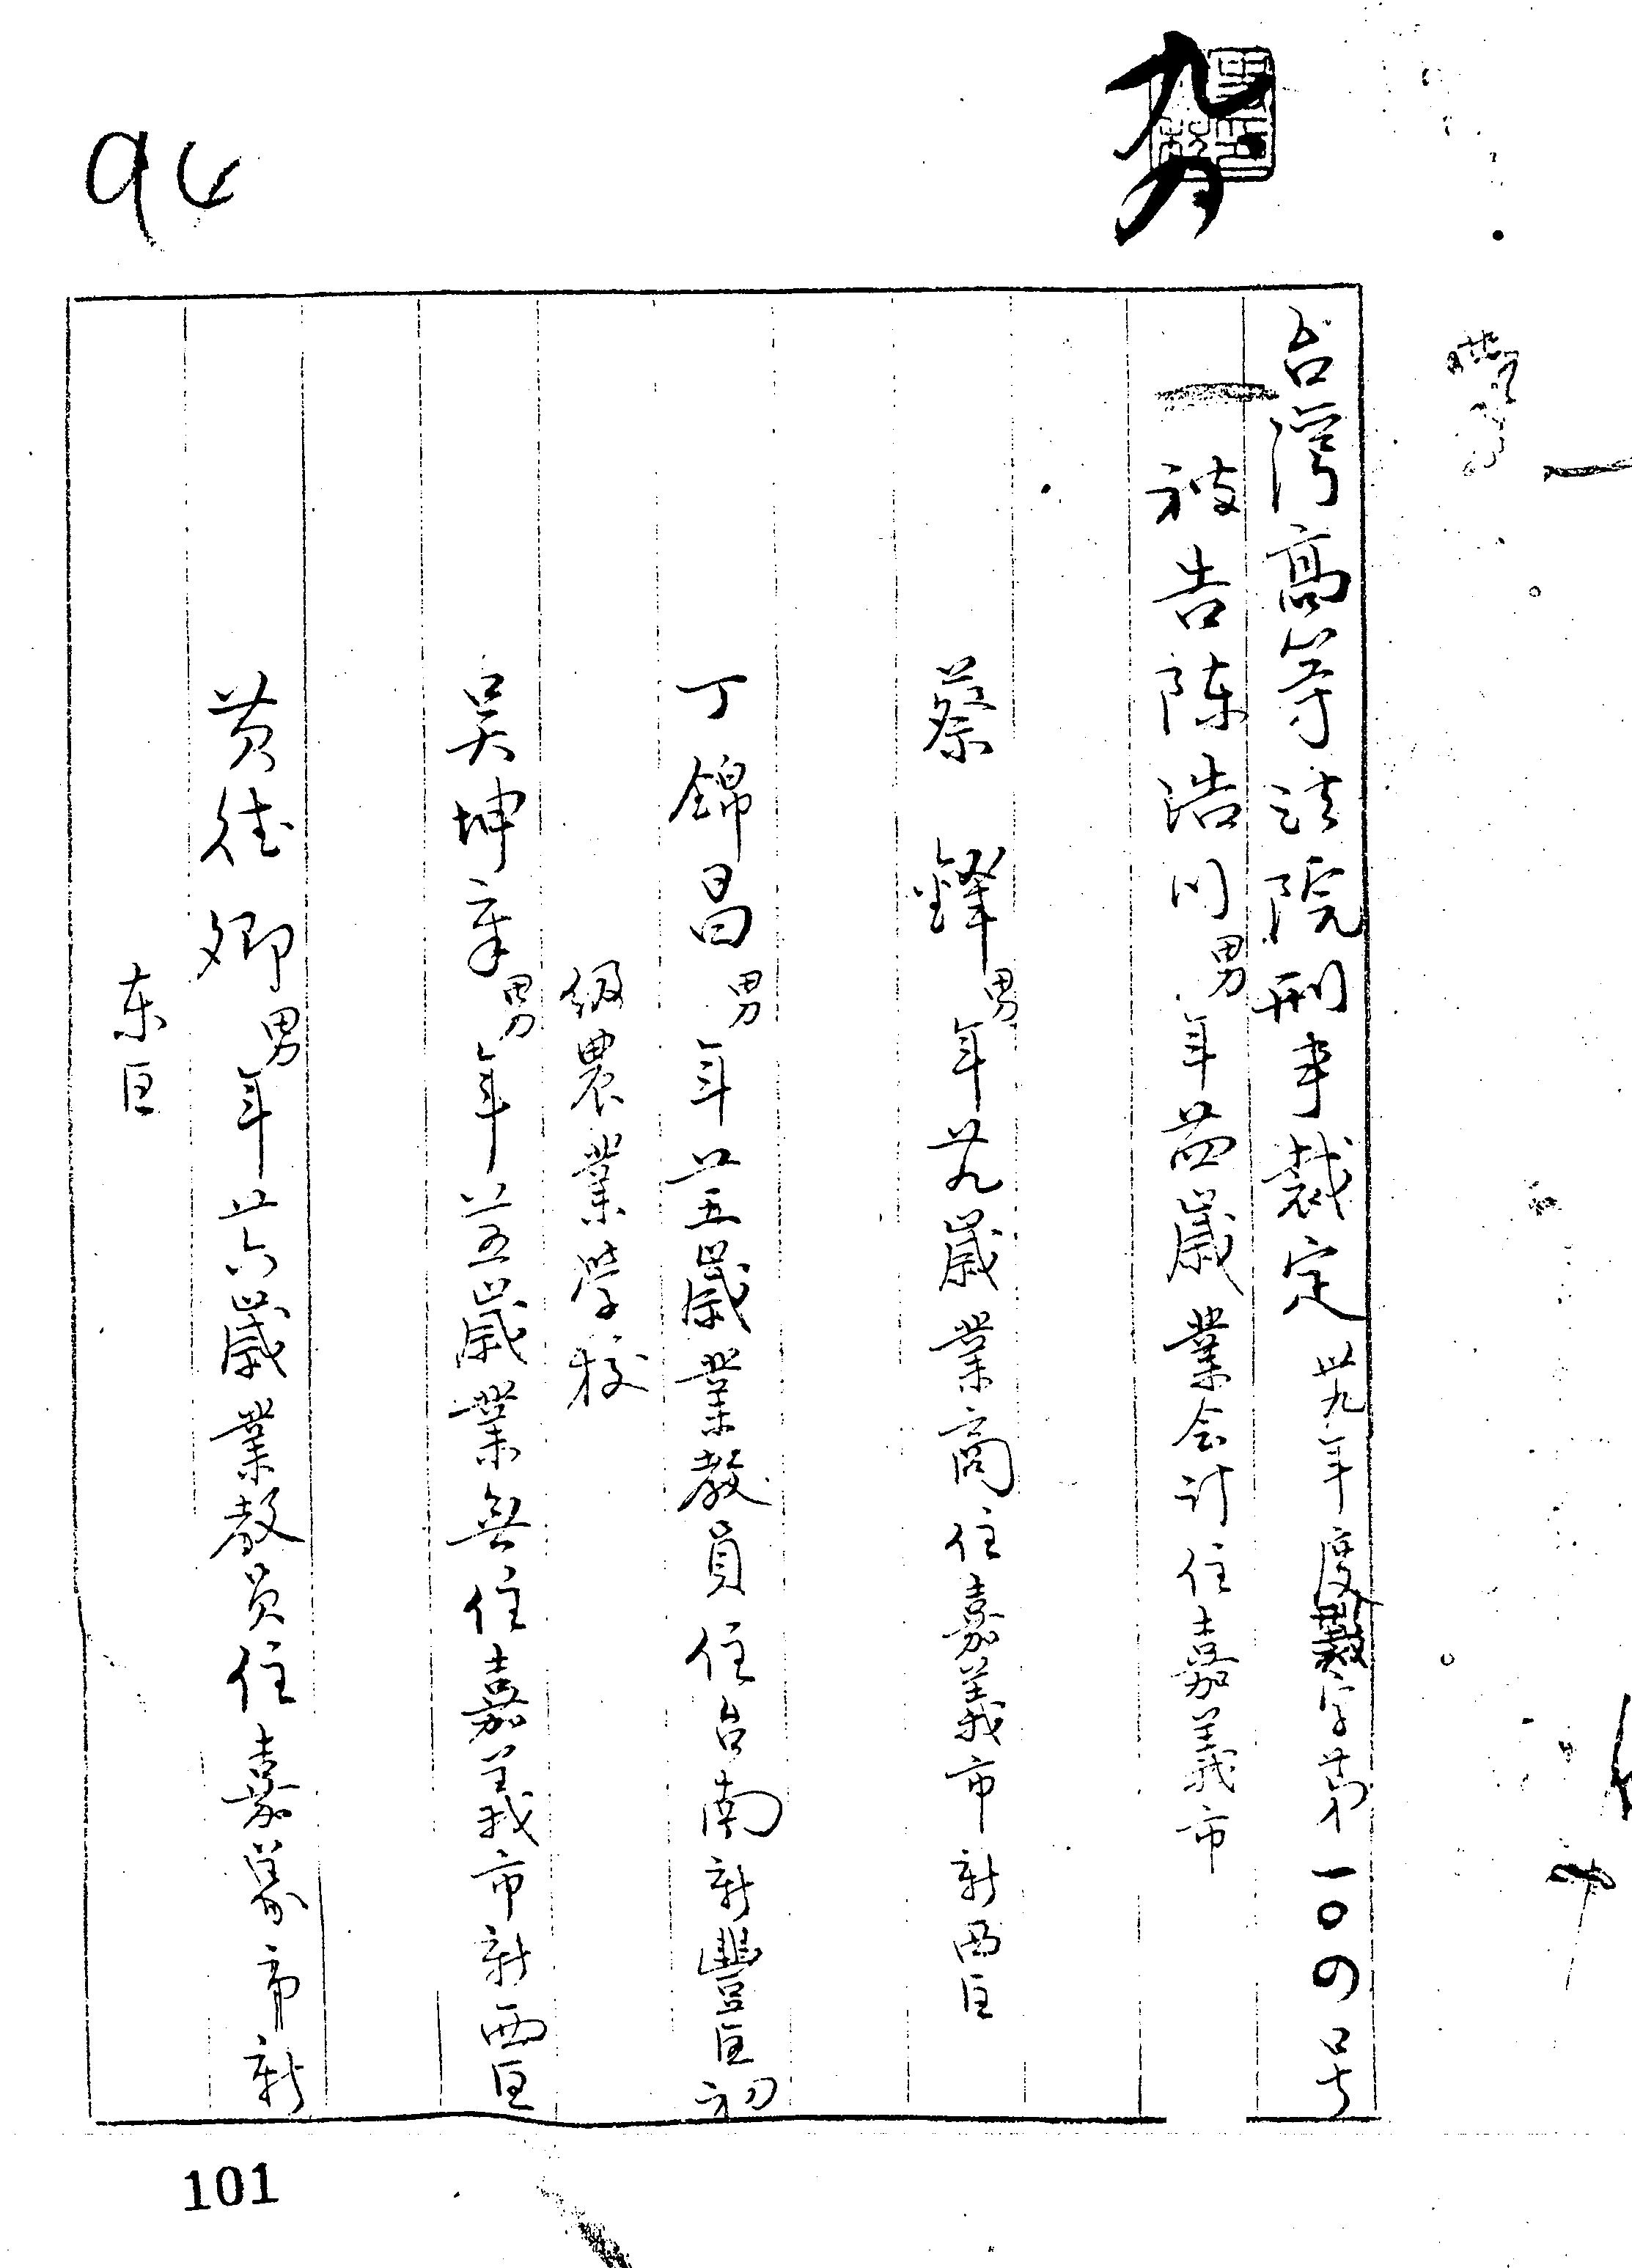 94
台湾高等法院刑事裁定 卅九年度裁字第一〇四号
一被告陈浩川男年廿四歲業会计住嘉義市
蔡鋒男年廿九歲業商住嘉義市新西区
丁錦昌男年廿五歲業教員住台南新豐区初
级農業学校
吴坤章男年廿五歲業無住嘉義市新西区
黄从卿男年廿六歲業教员住嘉義市新
东区
101